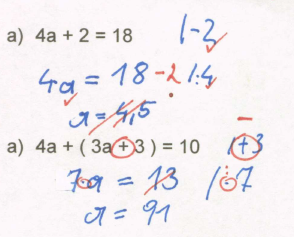 a) 4a + 2 = 18 |-2
4a = 18 -2 |:4
a = 4,5
a) 4a + ( 3a + 3 ) = 10 |+3
7a = 13 |:7
a = 91